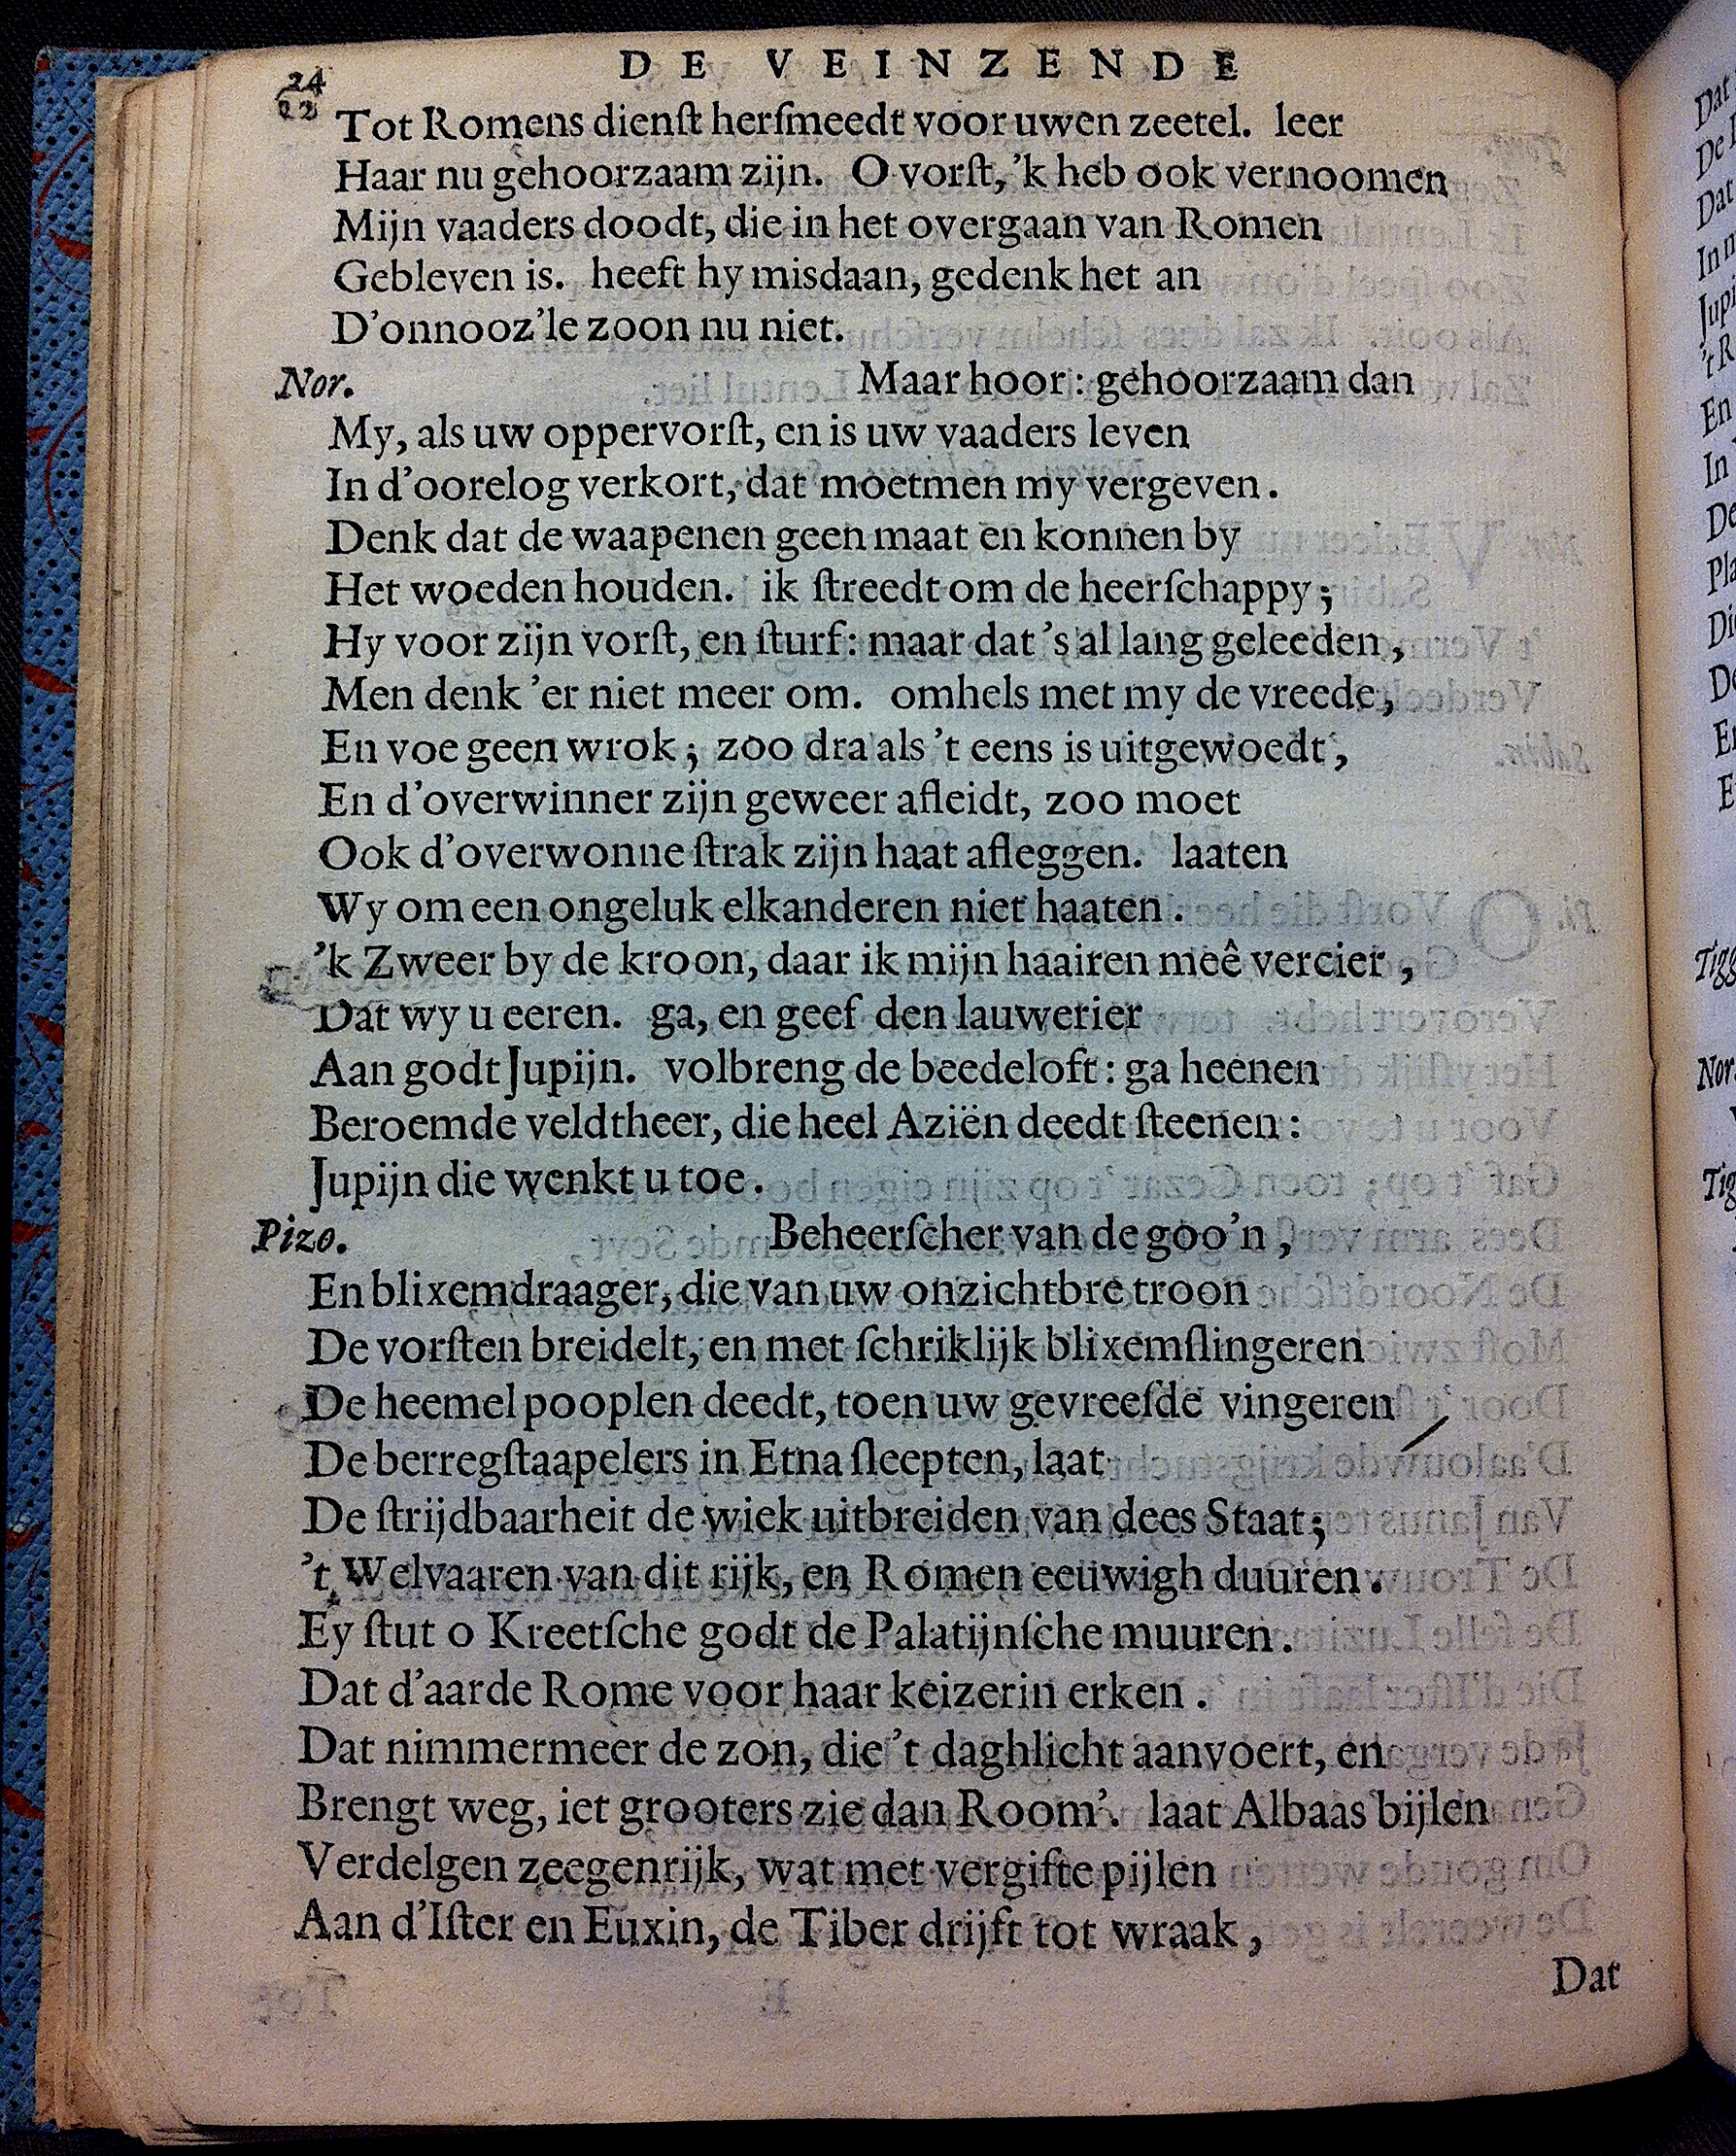 DE VEINZENDE
24
22
Tot Romens dienſt herſmeedt voor uwen zeetel. leer
Haar nu gehoorzaam zijn. O vorſt, ’k heb ook vernoomen
Mijn vaaders doodt, die in het overgaan van Romen
Gebleven is. heeft hy misdaan, gedenk het an
D’onnooz’le zoon nu niet.
Nor. Maar hoor: gehoorzaam dan
My, als uw oppervorſt, en is uw vaaders leven
In d’oorelog verkort, dat moetmen my vergeven.
Denk dat de waapenen geen maat en konnen by
Het woeden houden. ik ſtreedt om de heerſchappy;
Hy voor zijn vorſt, en ſturf: maar dat ’s al lang geleeden,
Men denk ’er niet meer om. omhels met my de vreede,
En voe geen wrok; zoo dra als ’t eens is uitgewoedt,
En d’overwinner zijn geweer afleidt, zoo moet
Ook d’overwonne ſtrak zijn haat afleggen. laaten
Wy om een ongeluk elkanderen niet haaten.
’k Zweer by de kroon, daar ik mijn haairen meê vercier,
Dat wy u eeren. ga, en geef den lauwerier
Aan godt Jupijn. volbreng de beedeloft: ga heenen
Beroemde veldtheer, die heel Aziën deedt ſteenen:
Jupijn die wenkt u toe.
Pizo. Beheerſcher van de goo’n,
En blixemdraager, die van uw onzichtbre troon
De vorſten breidelt, en met ſchriklijk blixemſlingeren
De heemel pooplen deedt, toen uw gevreeſde vingeren
De berregſtaapelers in Etna ſleepten, laat
De ſtrijdbaarheit de wiek uitbreiden van dees Staat;
’t Welvaaren van dit rijk, en Romen eeuwigh duuren.
Ey ſtut o Kreetſche godt de Palatijnſche muuren.
Dat d’aarde Rome voor haar keizerin erken.
Dat nimmermeer de zon, die ’t daghlicht aanvoert, en
Brengt weg, iet grooters zie dan Room’. laat Albaas bijlen
Verdelgen zeegenrijk, wat met vergifte pijlen
Aan d’Iſter en Euxin, de Tiber drijft tot wraak,
Dat